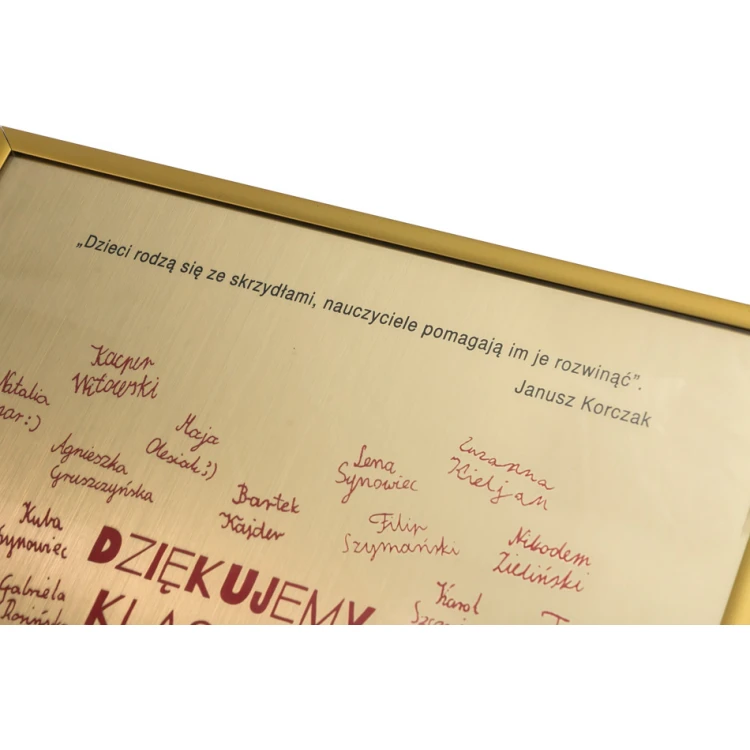 „Dzieci rodzą się ze skrzydłami, nauczyciele pomagają im je rozwinąć”.
Janusz Korczak
Kacper
Wątowski
Natalia
:)
Maja
Olesiak ;)
Agnieszka
Gruszczyńska
Lena
Synowiec
Zuzanna
Kieljan
Bartek
Kajder
Filip
Szymański
Nikodem
Zieliński
Kuba
Synowiec
DZIĘKUJEMY
Gabriela
Karol